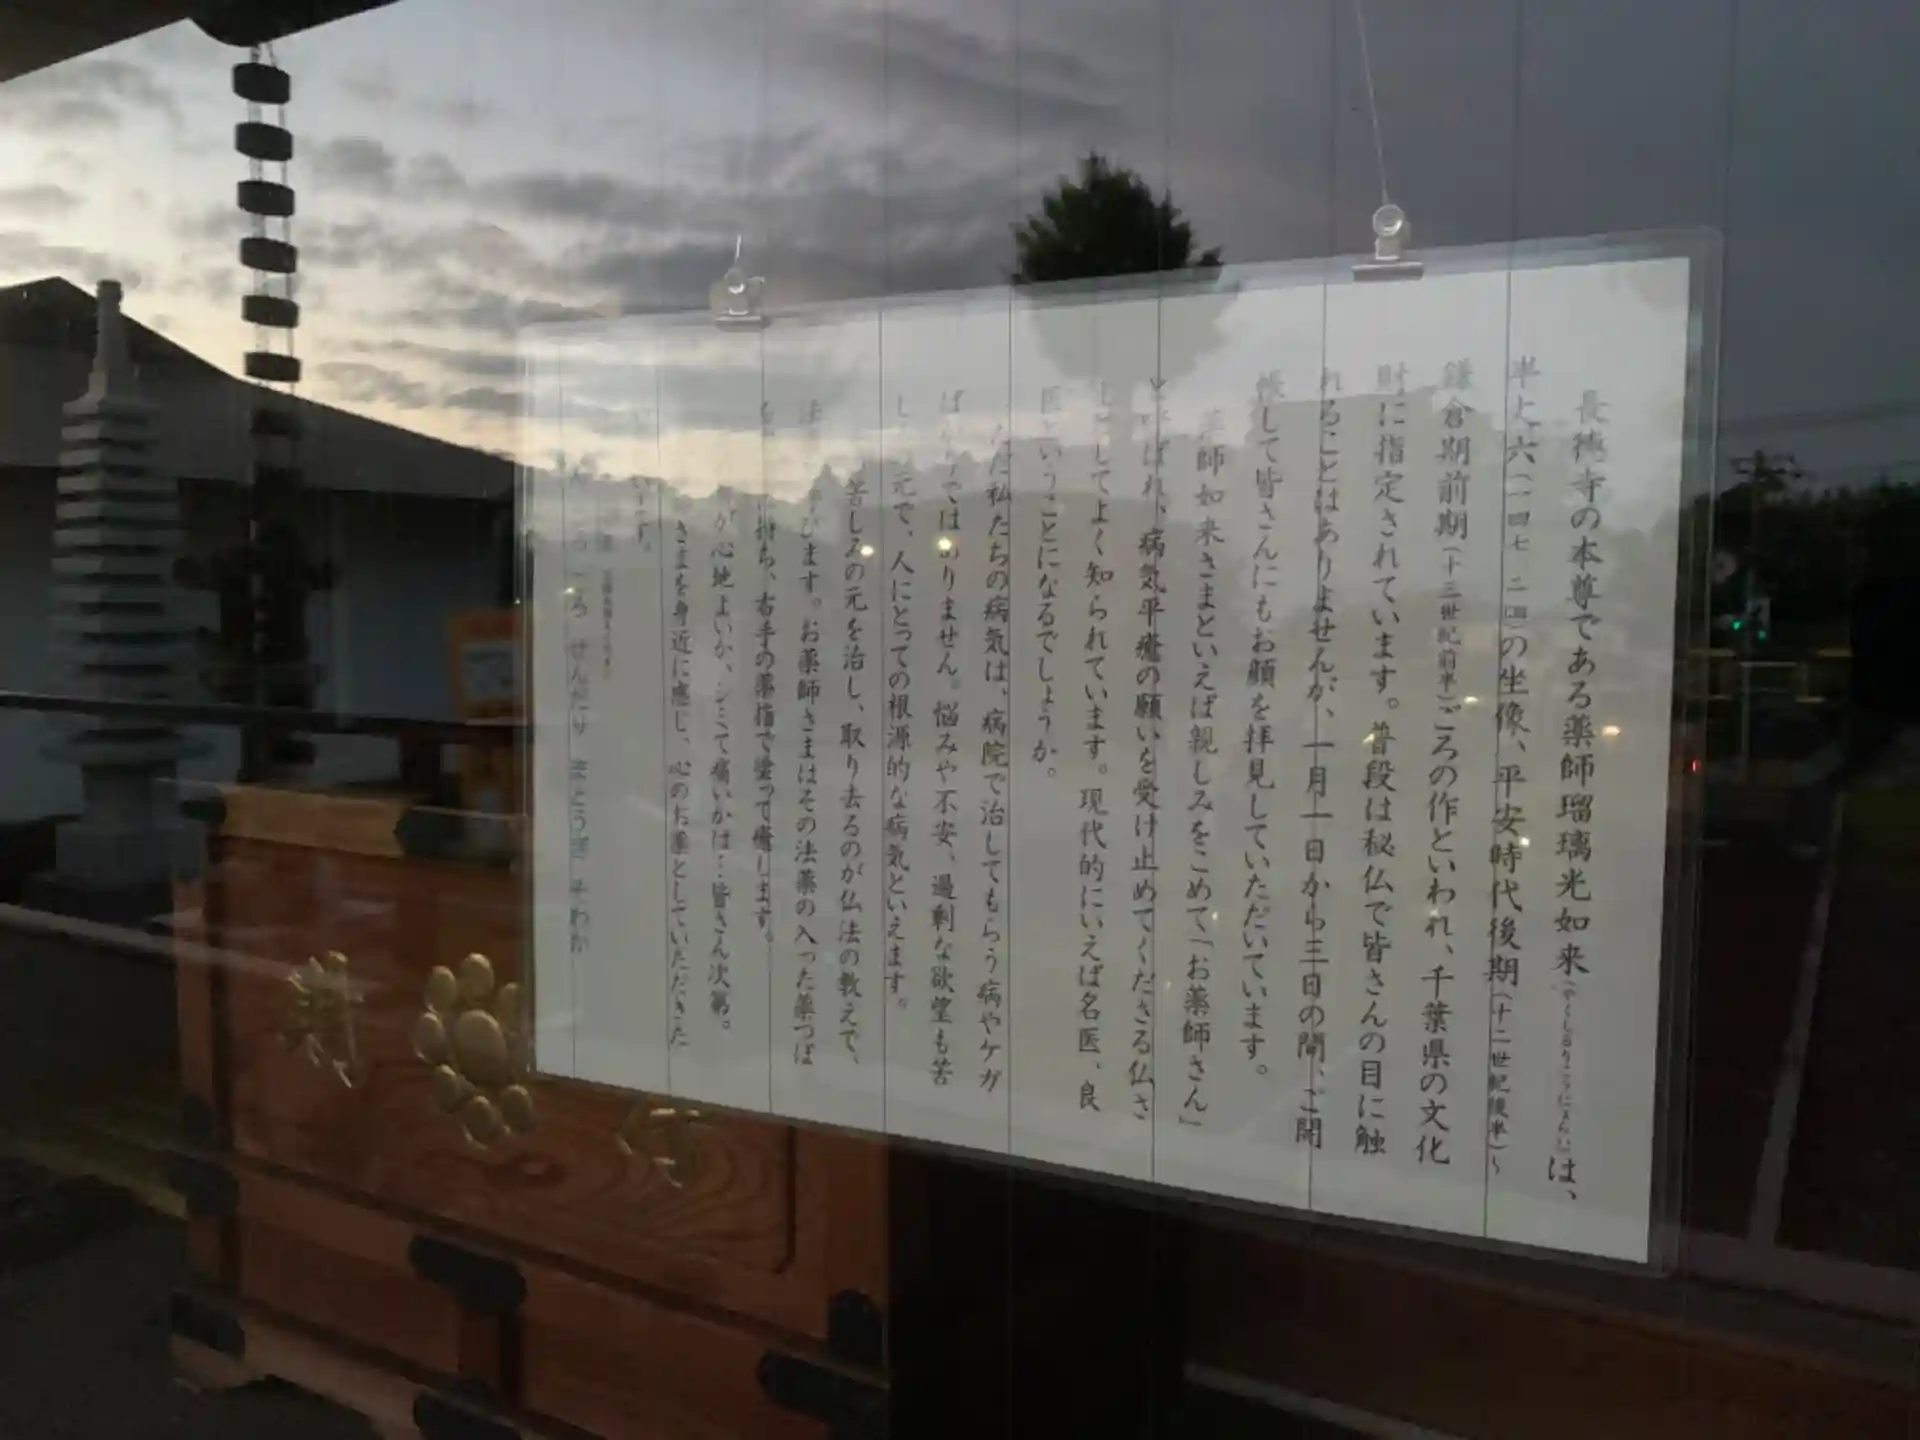 長徳寺の本尊である薬師瑠璃光如来(やくしるりこうにょらい)は、
半丈六(一四七.二㎝)の坐像、平安時代後期(十二世紀後半)~
鎌倉期前期(十三世紀前半)ごろの作といわれ、千葉県の文化
財に指定されています。普段は秘仏で皆さんの目に触
れることはありませんが、一月一日から三日の間、ご開
帳して皆さんにもお顔を拝見していただいています。
薬師如来さまといえば親しみをこめて「お薬師さん」
ばれ、病気平癒の願いを受け止めてくださる仏さ
としてよく知られています。現代的にいえば名医、良
医ということになるでしょうか。
私たちの病気は、病院で治してもらう病やケガ
ばかりではありません。悩みや不安、過剰な欲望も苦
し 元で、人にとっての根源的な病気といえます。
苦しみの元を治し、取り去るのが仏法の教えで、
びます。お薬師さまはその法薬の入った薬つぼ
持ち、右手の薬指で塗って癒します。
が心地よいか、シミて痛いかは…皆さん次第。
さまを身近に感じ、心のお薬としていただきた
います。
ころ せんだり まとうぎ そわか